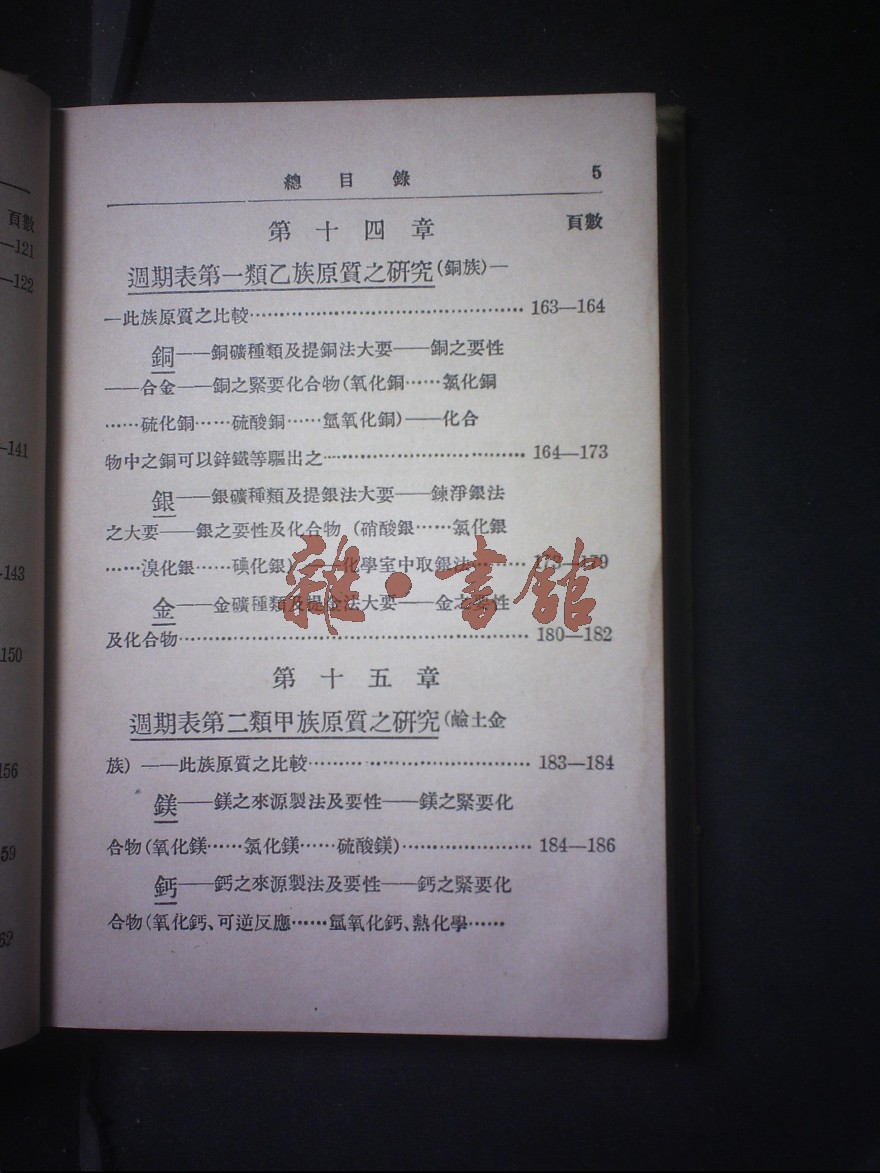 總目錄 5
第十四章 頁數
週期表第一類乙族原質之研究(銅族)—
—此族原質之比較……………………………………163—164
銅——銅礦種類及提銅法大要——銅之要性
——合金——銅之緊要化合物(氧化銅……氯化銅
……硫化銅……硫酸銅……氫氧化銅)——化合
物中之銅可以鋅鐵等驅出之…………………………164—173
銀——銀礦種類及提銀法大要——鍊淨銀法
之大要——銀之要性及化合物(硝酸銀……氯化銀
……溴化銀……碘化銀)——化學室中取銀法………173—179
金——金礦種類及提金法大要——金之要性
及化合物………………………………………………180—182
第十五章
週期表第二類甲族原質之研究(鹼土金
族)——此族原質之比較……………………………183—184
鎂——鎂之來源製法及要性——鎂之緊要化
合物(氧化鎂……氯化鎂……硫酸鎂)………………184—186
鈣——鈣之來源製法及要性——鈣之緊要化
合物(氧化鈣、可逆反應……氫氧化鈣、熱化學……
雜·書館
頁數
—121
—122
—141
—143
150
156
59
62